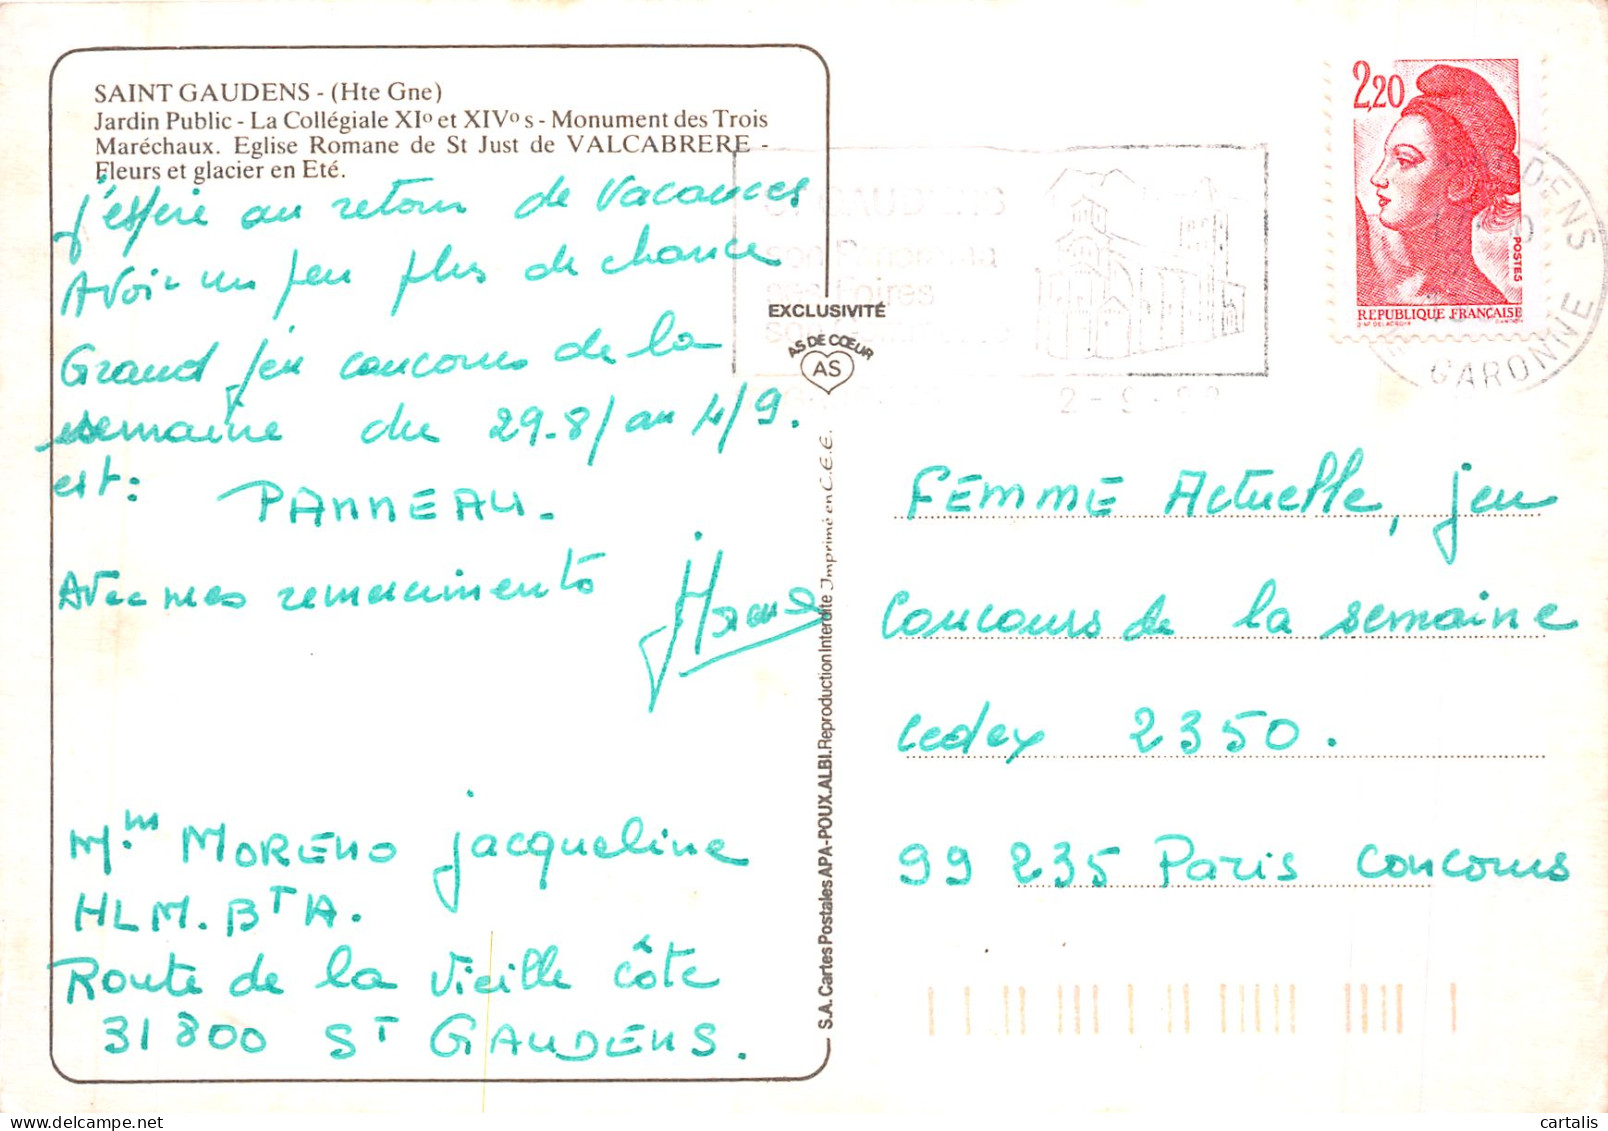 SAINT GAUDENS - (Hte Gne)
Jardin Public - La Collégiale XIº et XIVº s - Monument des Trois
Maréchaux. Eglise Romane de St Just de VALCABRERE -
Fleurs et glacier en Eté.
j'espère au retour de vacances
Avoir un peu plus de chance
Grand jeu concours de la
semaine du 29.8/au 4/9.
est: PANNEAU.
Avec mes remerciements
Mme MORENO jacqueline
HLM. BT A.
Route de la vieille côte
31800 ST GAUDENS.
EXCLUSIVITÉ
AS DE CŒUR
AS
S.A. Cartes Postales APA-POUX.ALBI.Reproduction Interdite Imprimé en C.E.E.
ST GAUDENS
son Panorama
ses Foires
2-9-
2,20
POSTES
REPUBLIQUE FRANÇAISE
GAUDENS
GARONNE
FEMME Actuelle, jeu
Concours de la semaine
cedex 2350.
99 235 Paris concours
cartalis